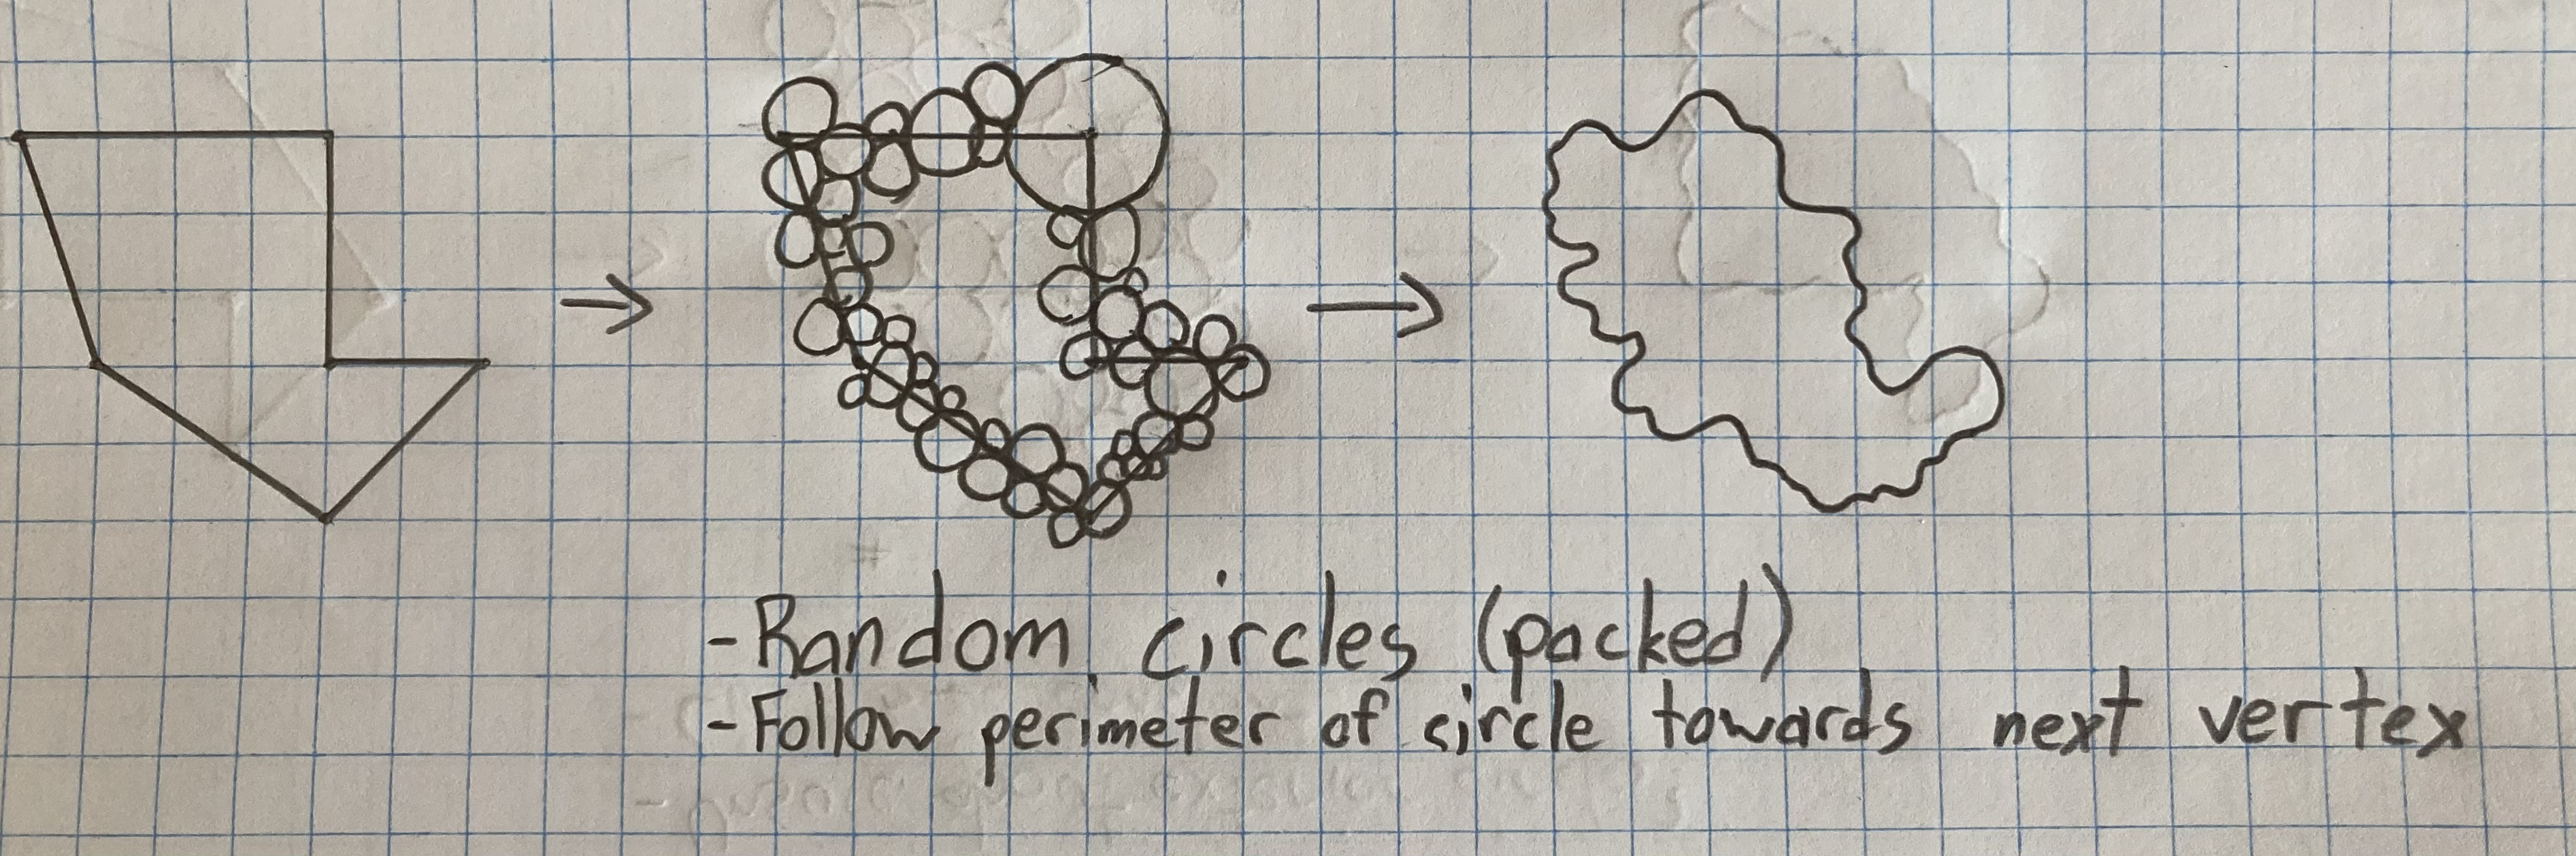 - Random circles (packed)
- Follow perimeter of circle towards next vertex